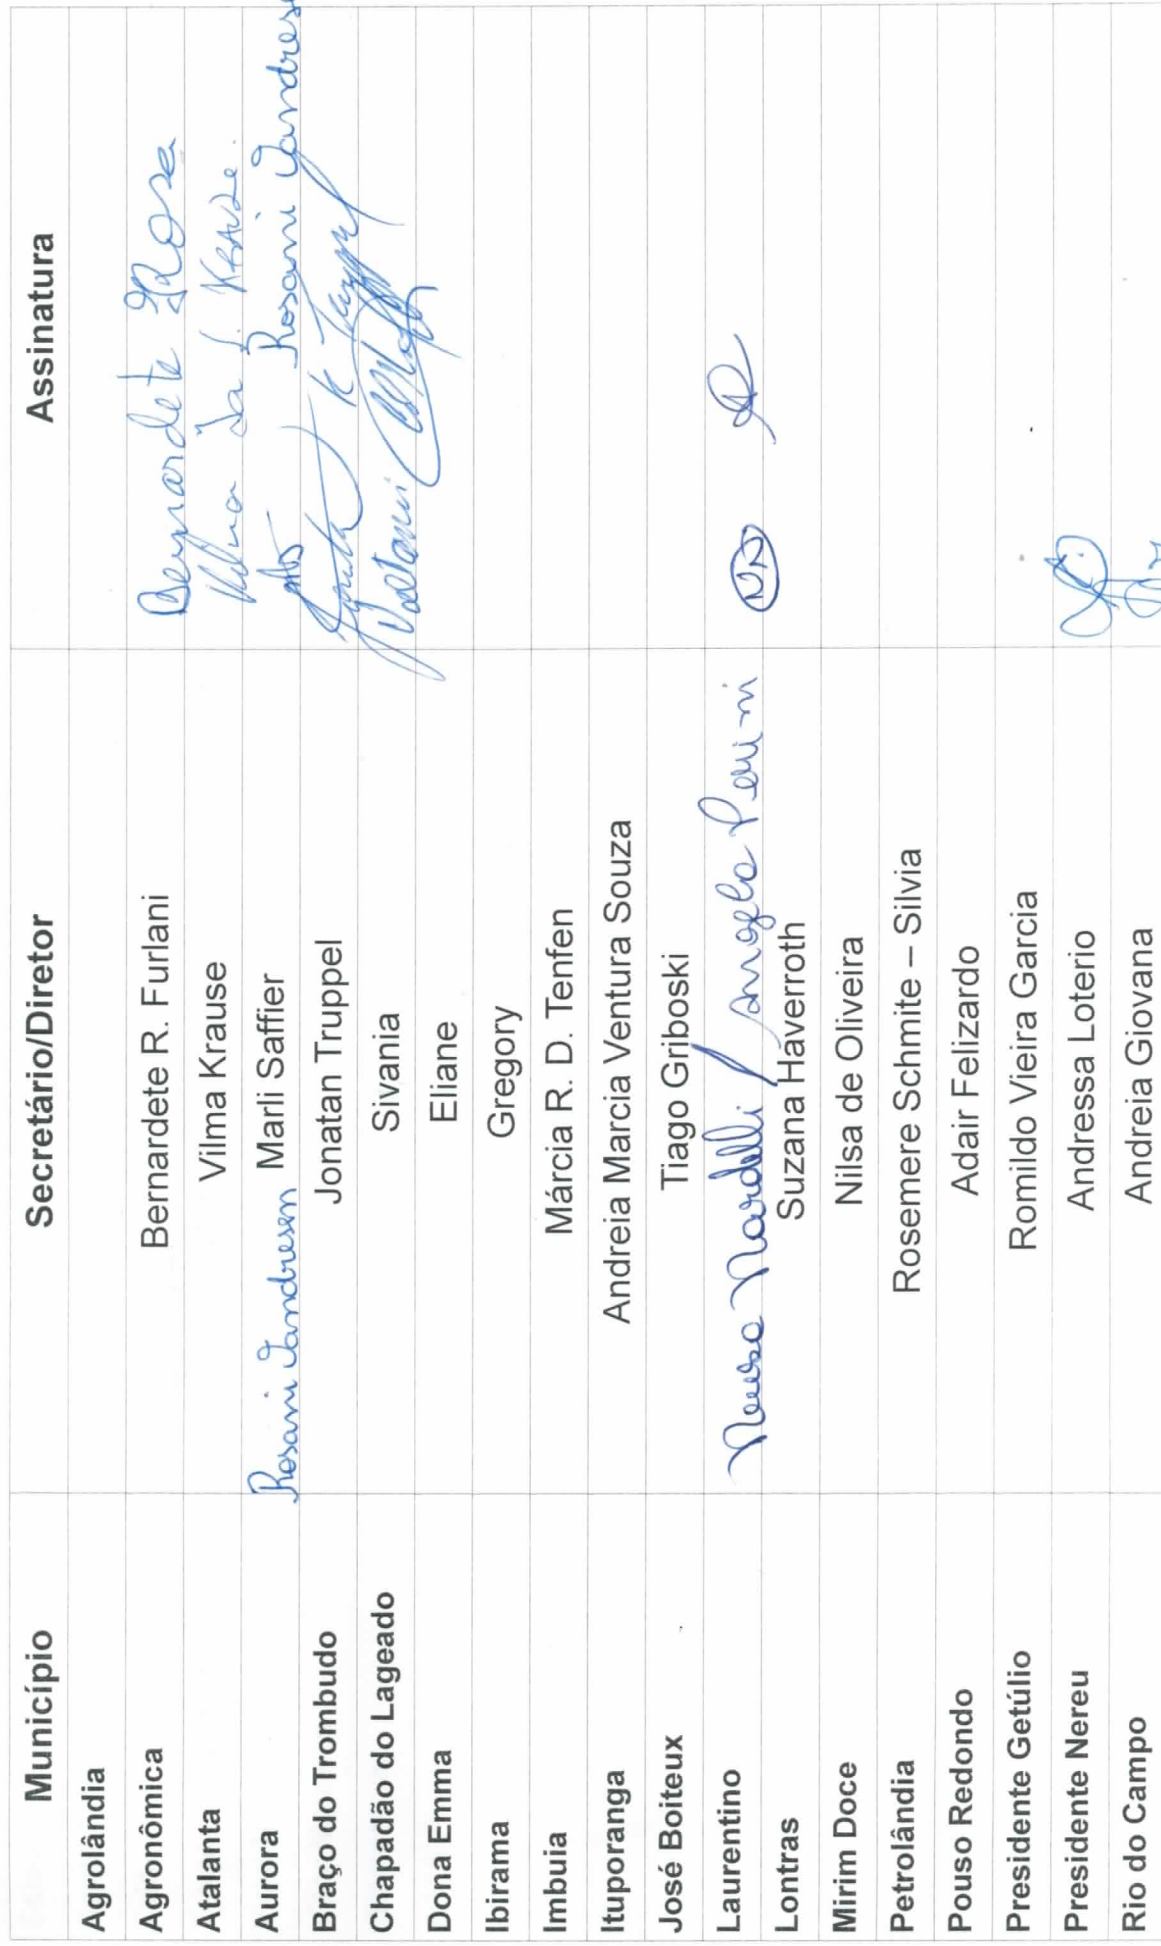 Município Secretário/Diretor Assinatura
Agrolândia
Agronômica Bernardete R. Furlani Bernardete Rosa
Atalanta Vilma Krause Vilma Krause
Aurora Rosani Jandresen Marli Saffier Rosani
Braço do Trombudo Jonatan Truppel
Chapadão do Lageado Sivania
Dona Emma Eliane
Ibirama Gregory
Imbuia Márcia R. D. Tenfen
Ituporanga Andreia Marcia Ventura Souza
José Boiteux Tiago Griboski
Laurentino Neusa Nardelli / Angela
Lontras Suzana Haverroth
Mirim Doce Nilsa de Oliveira
Petrolândia Rosemere Schmite – Silvia
Pouso Redondo Adair Felizardo
Presidente Getúlio Romildo Vieira Garcia
Presidente Nereu Andressa Loterio
Rio do Campo Andreia Giovana